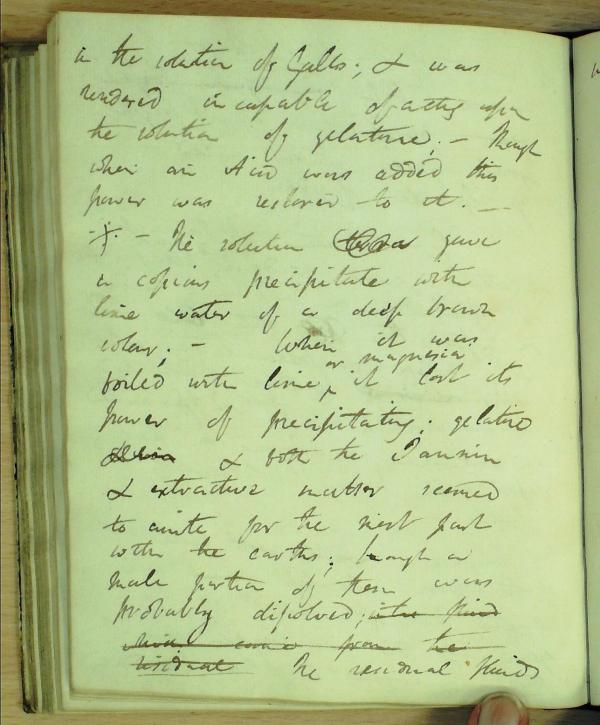 in the solution of Galls; & was
rendered incapable of acting upon
the solution of gelatine; — though
when an Acid was added this
power was restored to it. —
- ‡ - The solution gave
a copious precipitate with
lime water of a deep brown
colour; — When it was
boiled with lime ‸ or magnesia it lost its
power of precipitating; gelatine
& both the Tannin
& extractive matter seemed
to unite for the most part
with the earths; though a
small portion of them was
probably dissolved; the fluid
which came from the
residual The residual fluids